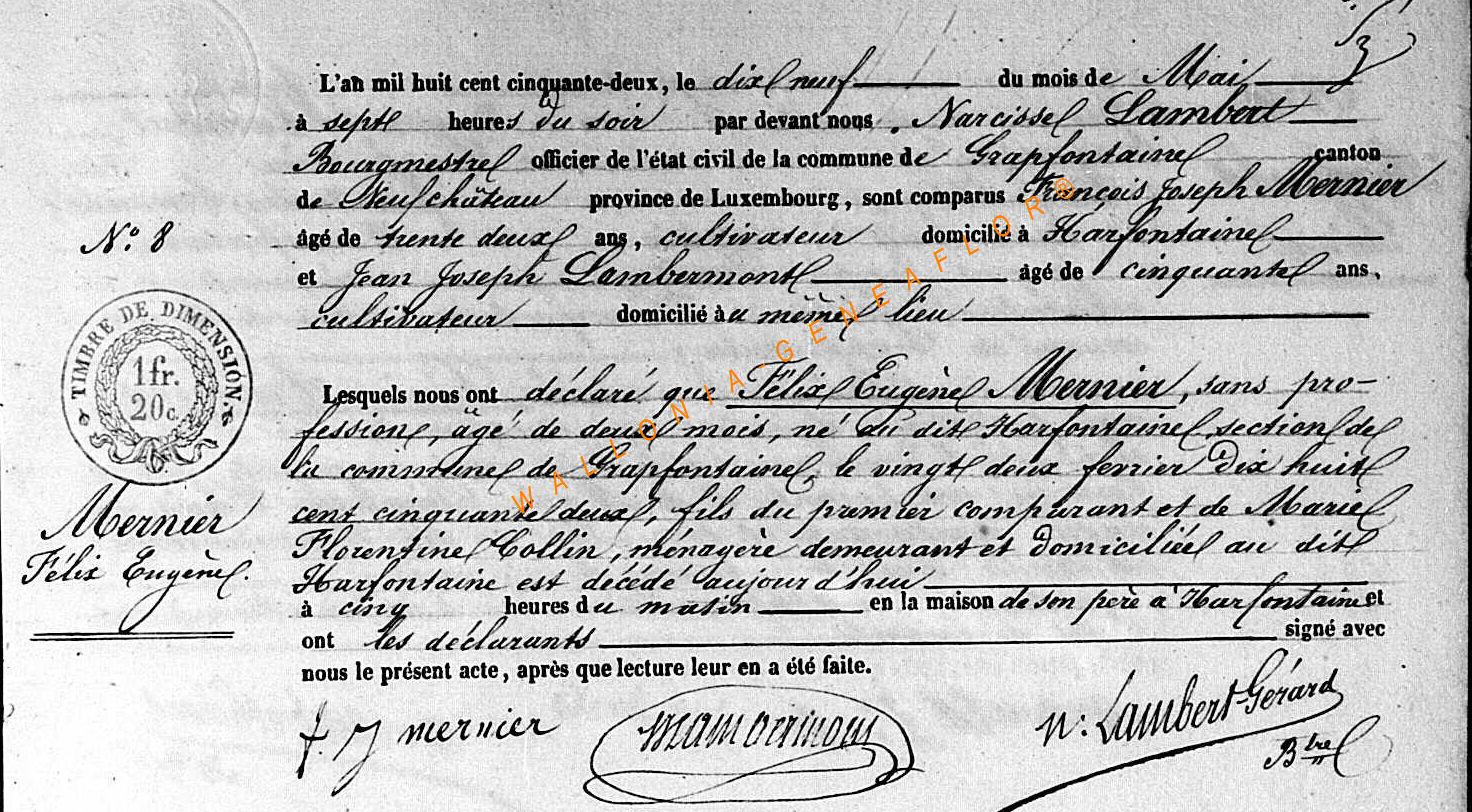 L'an mil huit cent cinquante-deux, le dix neuf du mois de Mai
à sept heures du soir par devant nous, Narcisse Lambert
Bourgmestre officier de l'état civil de la commune de Grapfontaine canton
de Neufchâteau province de Luxembourg, sont comparus François Joseph Mernier
N.° 8
âgé de trente deux ans, cultivateur domicilié à Harfontaine
et Jean Joseph Lambermont âgé de cinquante ans,
cultivateur domicilié au même lieu
TIMBRE DE DIMENSION
1 fr.
20 c.
Lesquels nous ont déclaré que Félix Eugène Mernier, sans pro-
fession, âgé de deux mois, né au dit Harfontaine, section de
la commune de Grapfontaine, le vingt deux fevrier dix huit
cent cinquante deux, fils du premier comparant et de Marie
Florentine Collin, ménagère demeurant et domiciliée au dit
Harfontaine est décédé aujourd'hui
à cinq heures du matin en la maison de son père à Harfontaine et
ont les déclarants signé avec
nous le présent acte, après que lecture leur en a été faite.
Mernier
Félix Eugène.
f. J mernier
N: Lambert-Gérard
Btre
WALLONIA-GENEAFLOR®